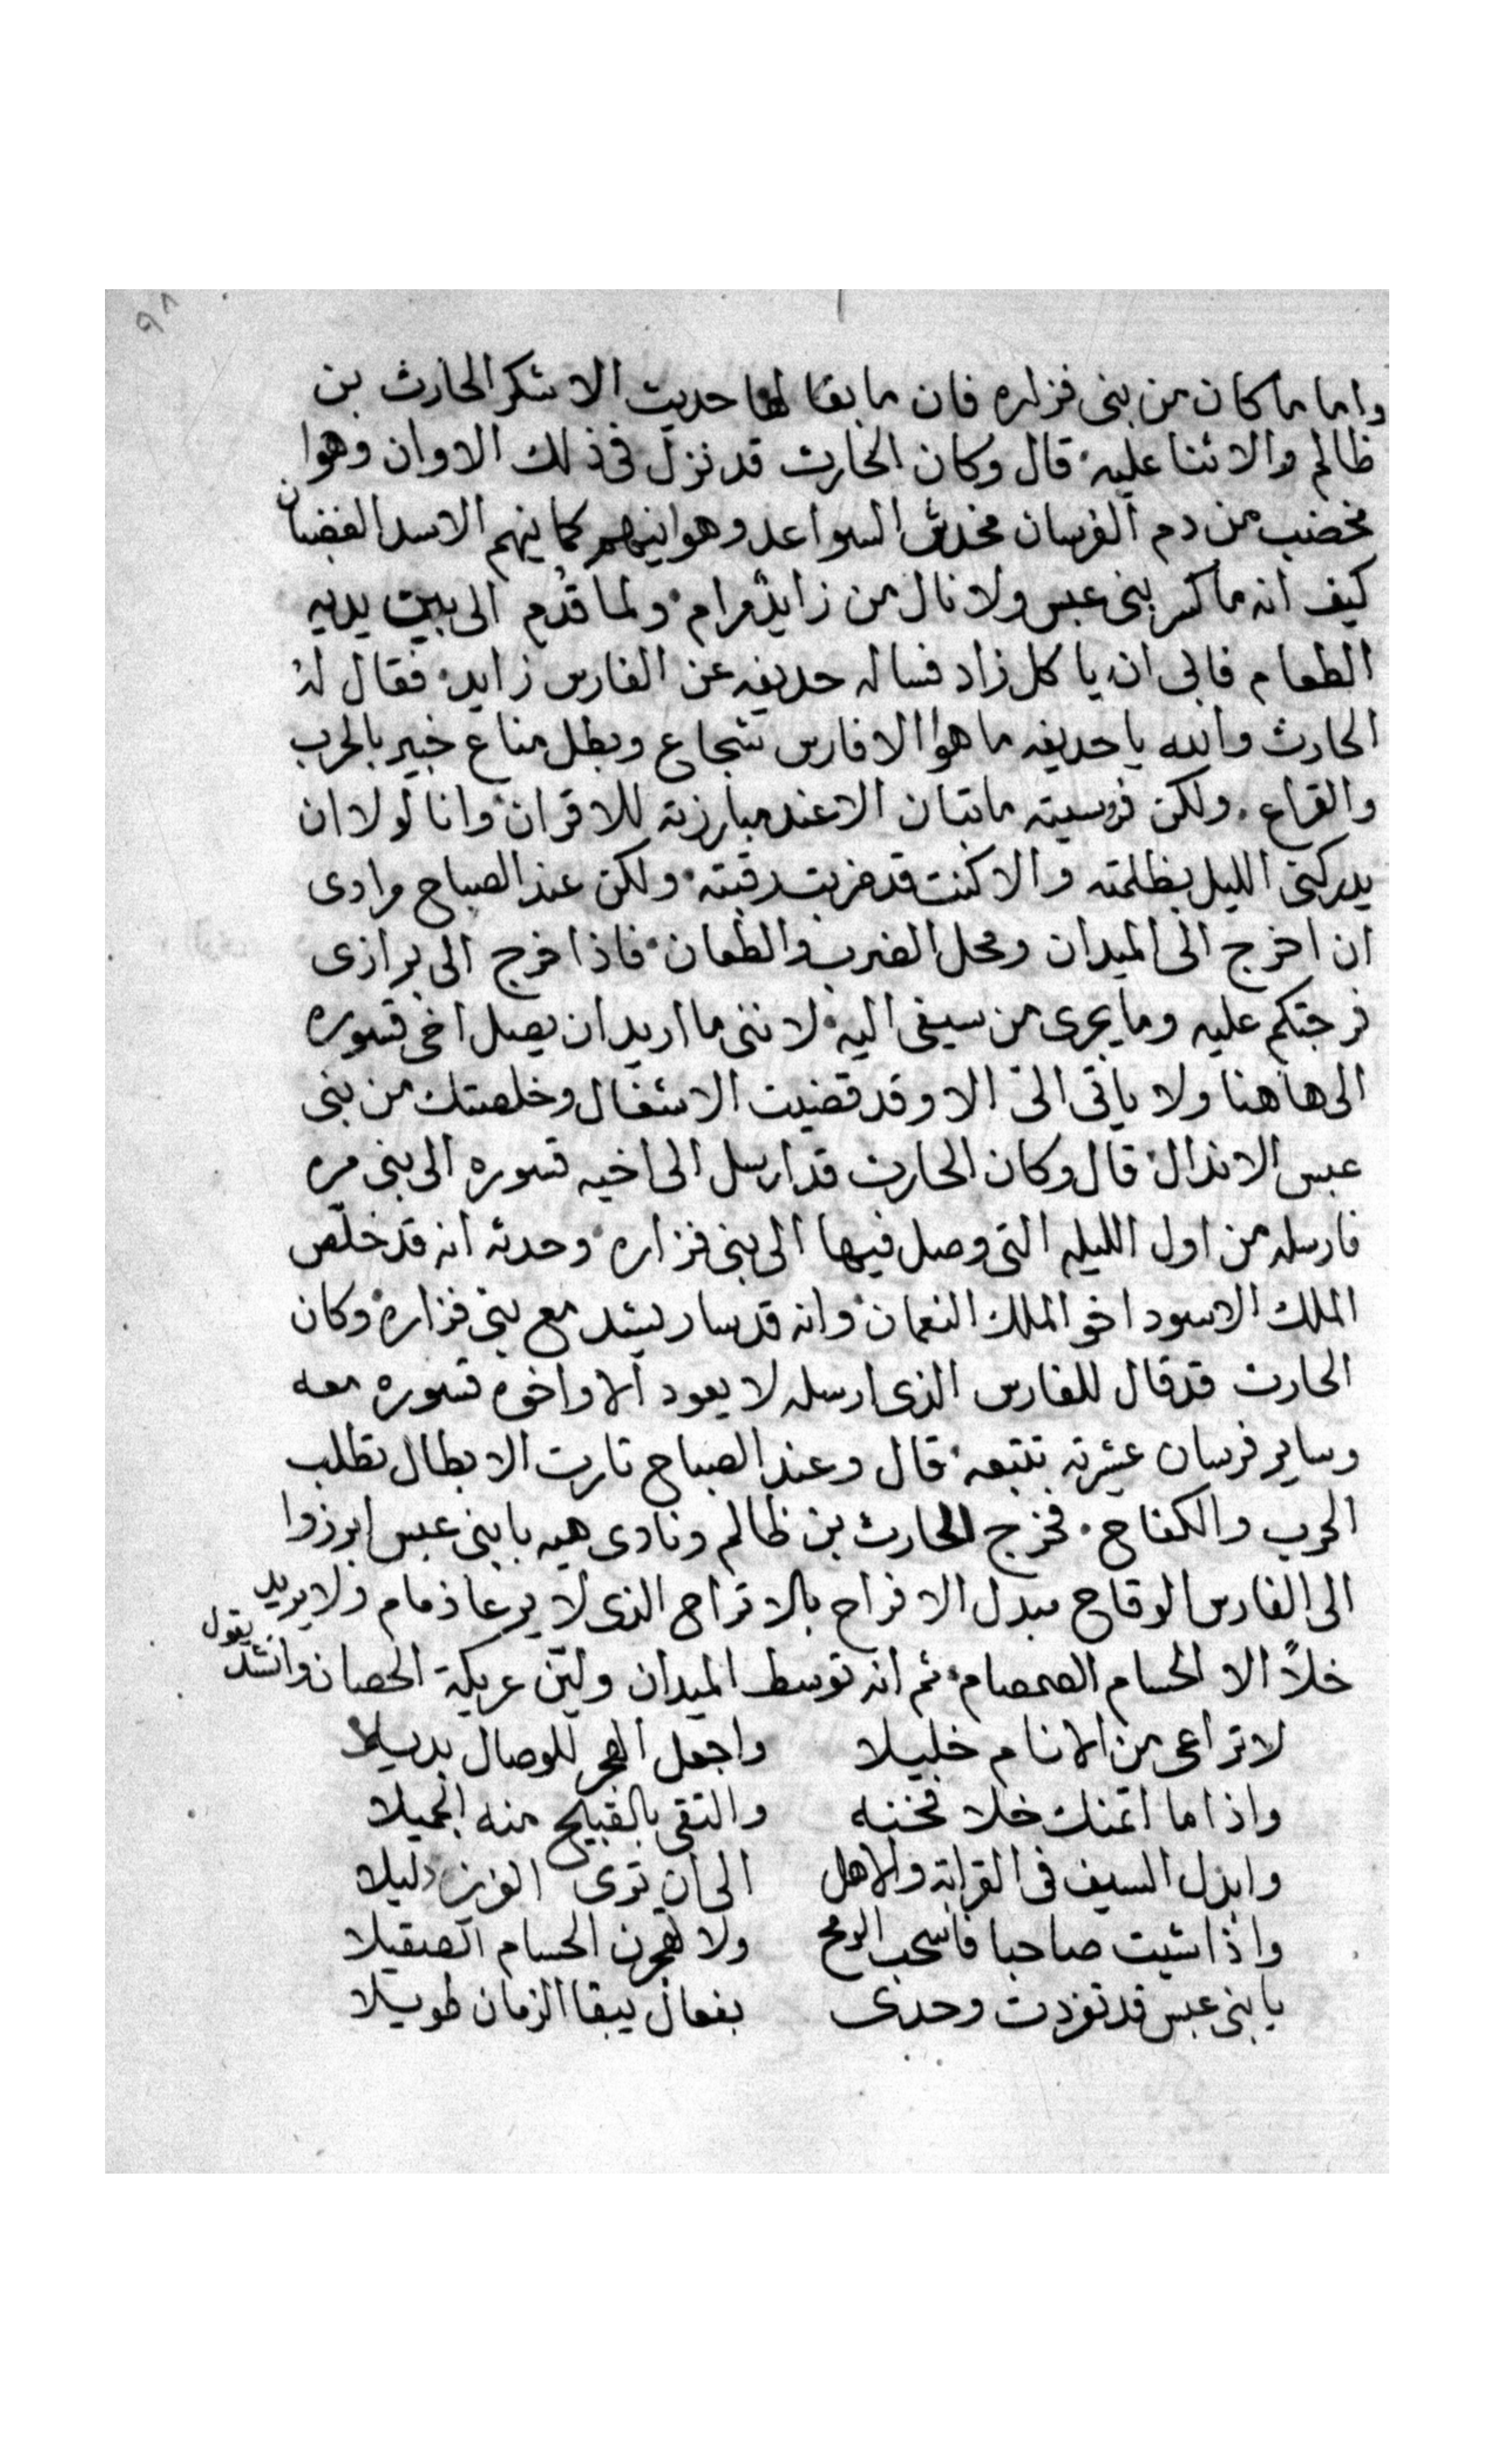 ٩٨
واما ما كان من بنى فزاره فان ما بقا لها حديت الا شكر الحارث بن
ظالم والاثنا عليه قال وكان الحارت قد نزل فى ذلك الاوان وهوا
مخضب من دم الفرسان مخدش السواعد وهوا ينهم كما ينهم الاسد الغضبان
كيف انه ما كسر بنى عبس ولا نال من زايد مرام ولما قُدم الى بين يديه
الطعام فابى ان ياكل زاد فساله حديفه عن الفارس زايد فقال له
الحارث والله يا حديفه ما هوا الا فارس شجاع وبطل مناع خبير بالحرب
والقراع ولكن فروسيته ما تبان الا عند مبارزته للاقران وانا لولا ان
يدركنى الليل بظلمته والا كنت قد ضربت رقبته ولكن عند الصباح مرادى
ان اخرج الى الميدان ومحل الضرب والطعان فاذا خرج الى برازى
فرجتكم عليه وما يجرى من سيفى اليه لاننى ما اريد ان يصل اخى قسوره
الى هاهنا ولا ياتى الىّ الا وقد قضيت الاشغال وخلصتك من بنى
عبس الاندال قال وكان الحارت قد ارسل الى اخيه قسوره الى بنى مره
فارسله من اول الليله التى وصل فيها الى بنى فزاره وحدثه انه قد خلّص
الملك الاسود اخو الملك النعمان وانه قد سار يشد مع بنى فزاره وكان
الحارت قد قال للفارس الذى ارسله لا يعود الا واخوه قسوره معه
وساير فرسان عشرته تتبعه قال وعند الصباح تارت الابطال تطلب
الحرب والكفاح فخرج الحارث بن ظالم ونادى هيه يا بنى عبس ابرزوا
الى الفارس الوقاح مبدل الافراح بالاتراح الذى لا يرعا ذمام ولا يريد
خلاً الا الحسام الصمصام ثم انه توسط الميدان وليّن عريكة الحصان وانشد يقول
لا تراعى من الانام خليلا واجعل الهجر للوصال بديلا
واذا ما اتمنك خلا فخنه والتقى بالقبيح منه الجميلا
وابذل السيف فى القرابة والاهل الى ان ترى العزيز دليلا
واذا شيت صاحبا فاسحب الرمح ولا تهجرن الحسام الصقيلا
يا بنى عبس قد تفردت وحدى بفعال يبقا الزمان طويلا